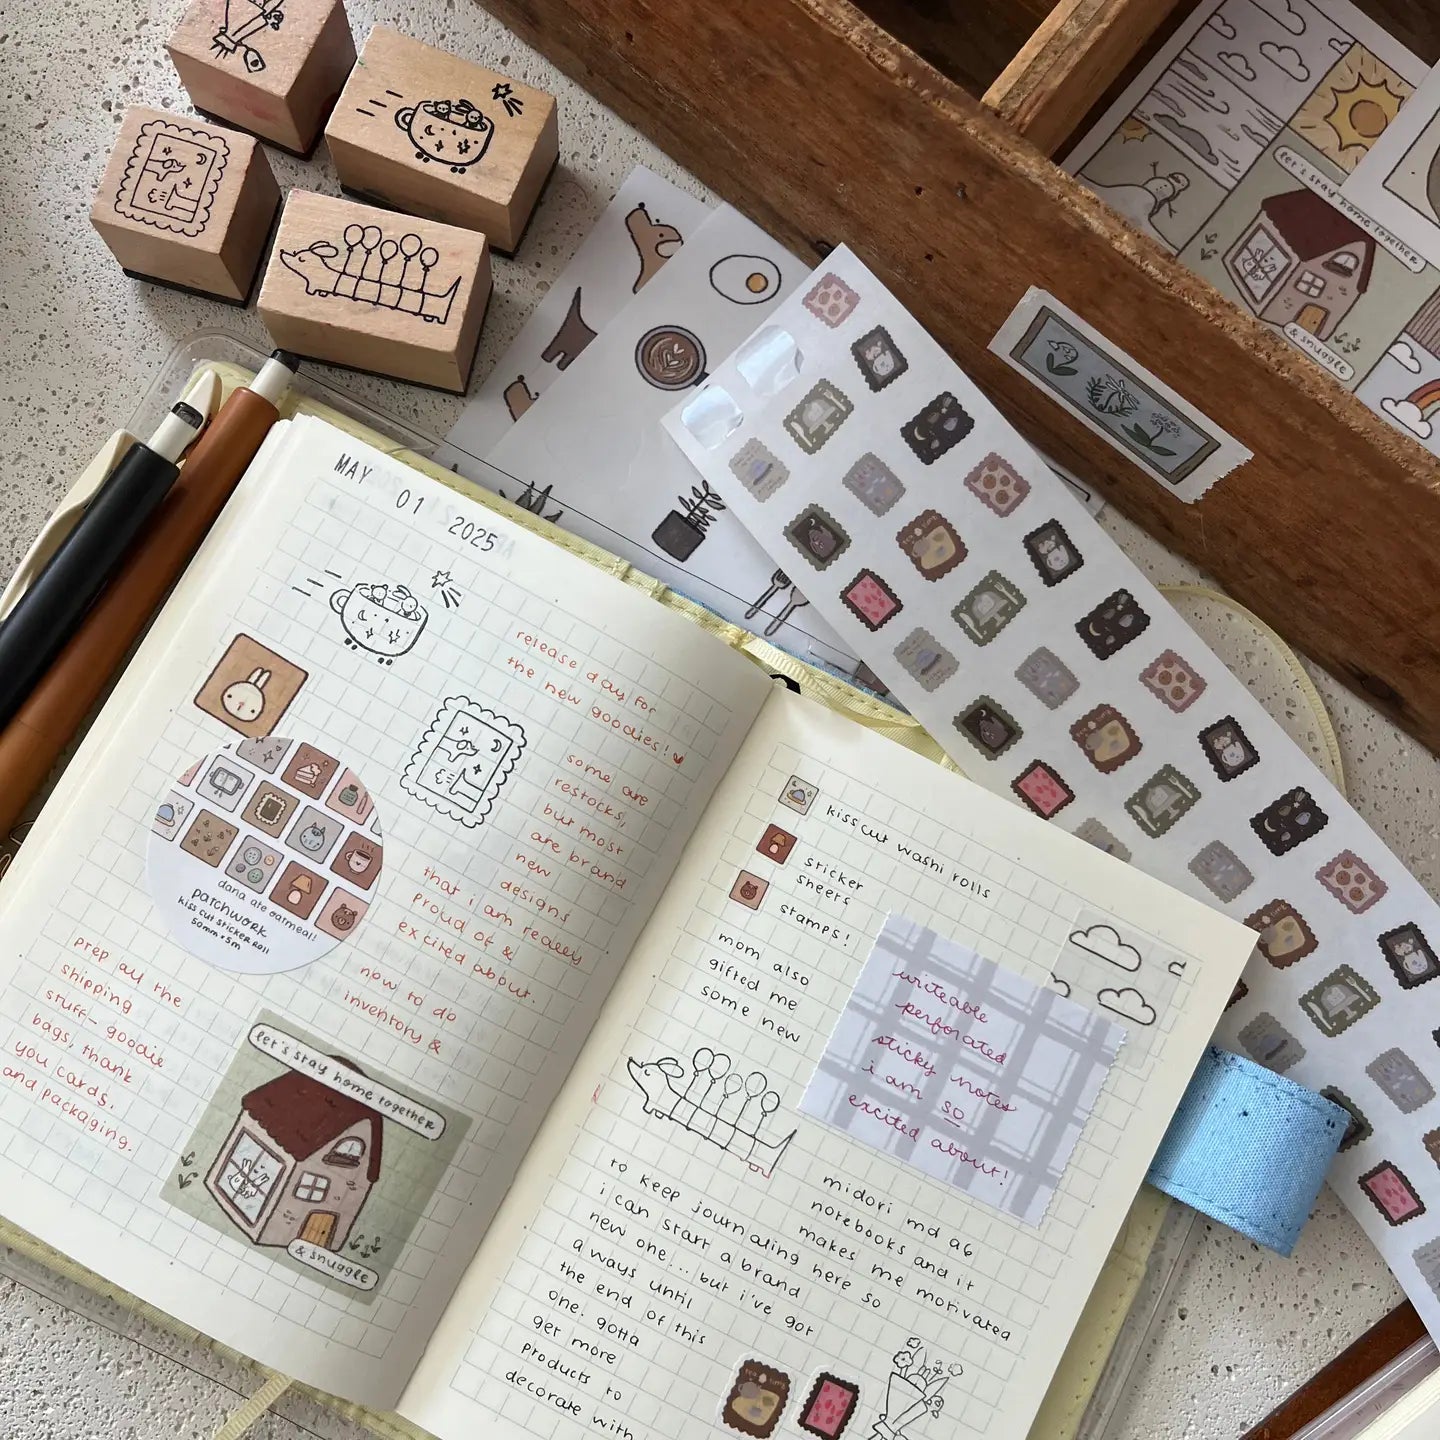 MAY 01 2025
release day for
the new goodies!
some are
restocks,
but most
are brand
new
designs
that i am really
proud of &
excited about.
now to do
inventory &
prep all the
shipping
stuff- goodie
bags, thank
you cards,
and packaging.
dana ate oatmeal!
patchwork
kiss cut sticker roll
50mm • 5m
let's stay home together
& snuggle
kiss cut washi rolls
sticker
sheets
stamps!
mom also
gifted me
some new
writeable
perforated
sticky notes
i am so
excited about!
midori md a6
notebooks and it
makes me motivated
to keep journaling here so
i can start a brand
new one... but i've got
aways until
the end of this
one. gotta
get more
products to
decorate with
let's stay home together
& snuggle